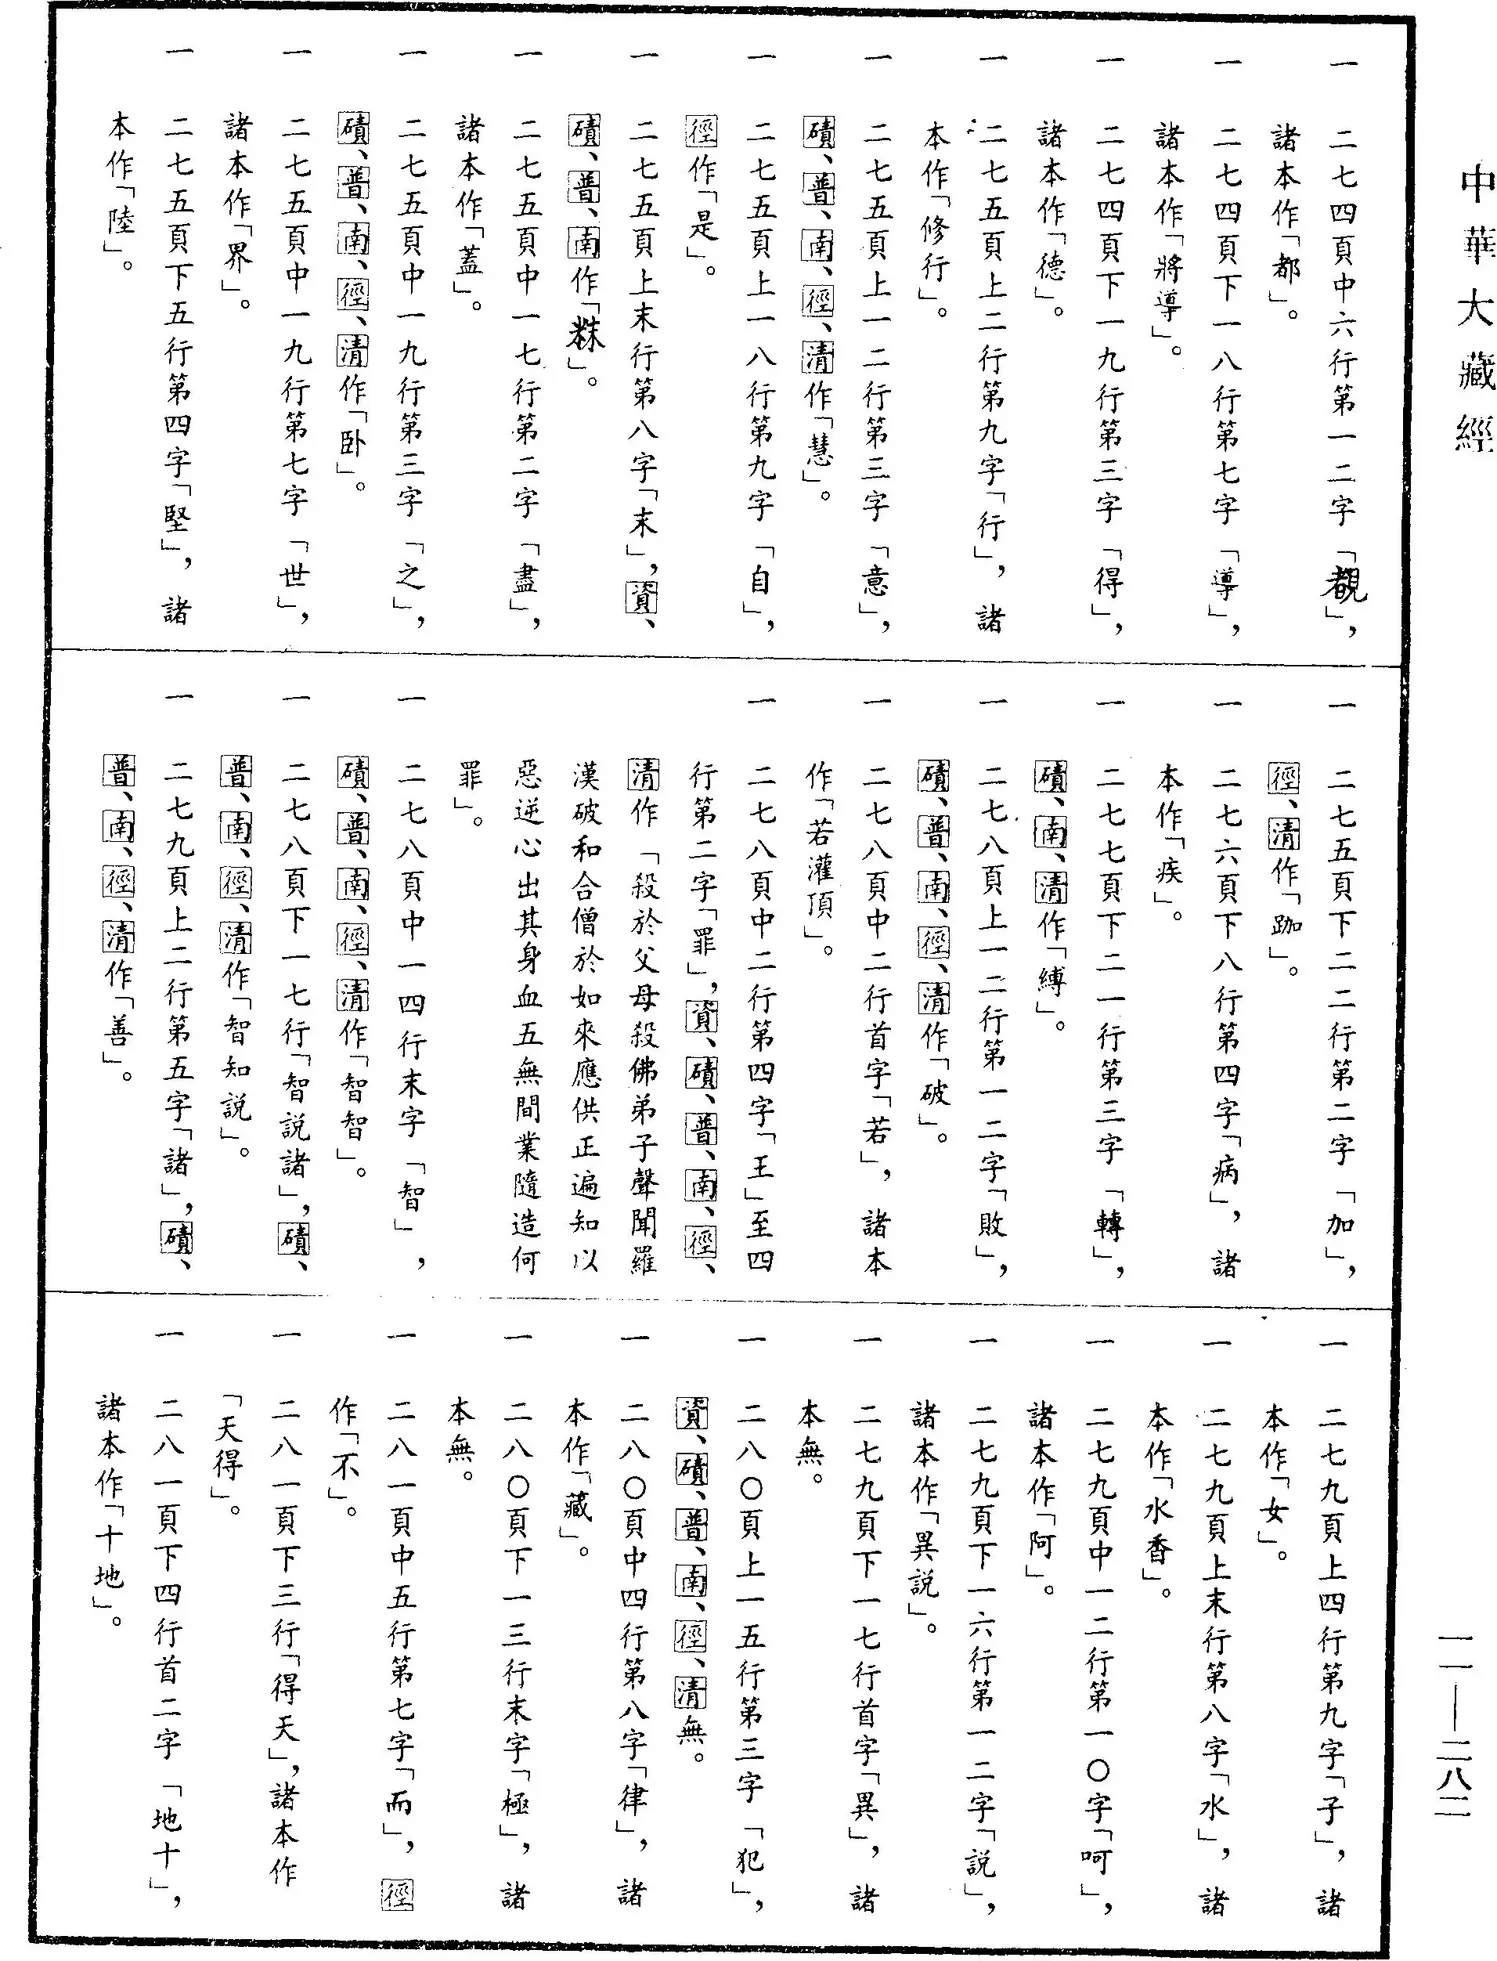 中華大藏經
一　二七四頁中六行第一二字「覩」，
諸本作「都」。
一　二七四頁下一八行第七字「導」，
諸本作「將導」。
一　二七四頁下一九行第三字「得」，
諸本作「德」。
一　二七五頁上二行第九字「行」，諸
本作「修行」。
一　二七五頁上一二行第三字「意」，
磧、普、南、徑、清作「慧」。
一　二七五頁上一八行第九字「自」，
徑作「是」。
一　二七五頁上末行第八字「末」，資、
磧、普、南作「粖」。
一　二七五頁中一七行第二字「盡」，
諸本作「蓋」。
一　二七五頁中一九行第三字「之」，
磧、普、南、徑、清作「卧」。
一　二七五頁中一九行第七字「世」，
諸本作「界」。
一　二七五頁下五行第四字「堅」，諸
本作「陸」。
一　二七五頁下二二行第二字「加」，
徑、清作「跏」。
一　二七六頁下八行第四字「病」，諸
本作「疾」。
一　二七七頁下二一行第三字「轉」，
磧、南、清作「縛」。
一　二七八頁上一二行第一二字「敗」，
磧、普、南、徑、清作「破」。
一　二七八頁中二行首字「若」，諸本
作「若灌頂」。
一　二七八頁中二行第四字「王」至四
行第二字「罪」，資、磧、普、南、徑、
清作「殺於父母殺佛弟子聲聞羅
漢破和合僧於如來應供正遍知以
惡逆心出其身血五無間業隨造何
罪」。
一　二七八頁中一四行末字「智」，
磧、普、南、徑、清作「智智」。
一　二七八頁下一七行「智説諸」，磧、
普、南、徑、清作「智知説」。
一　二七九頁上二行第五字「諸」，磧、
普、南、徑、清作「善」。
一　二七九頁上四行第九字「子」，諸
本作「女」。
一　二七九頁上末行第八字「水」，諸
本作「水香」。
一　二七九頁中一二行第一〇字「呵」，
諸本作「阿」。
一　二七九頁下一六行第一二字「説」，
諸本作「異説」。
一　二七九頁下一七行首字「異」，諸
本無。
一　二八〇頁上一五行第三字「犯」，
資、磧、普、南、徑、清無。
一　二八〇頁中四行第八字「律」，諸
本作「藏」。
一　二八〇頁下一三行末字「極」，諸
本無。
一　二八一頁中五行第七字「而」，徑
作「不」。
一　二八一頁下三行「得天」，諸本作
「天得」。
一　二八一頁下四行首二字「地十」，
諸本作「十地」。
一一—二八二